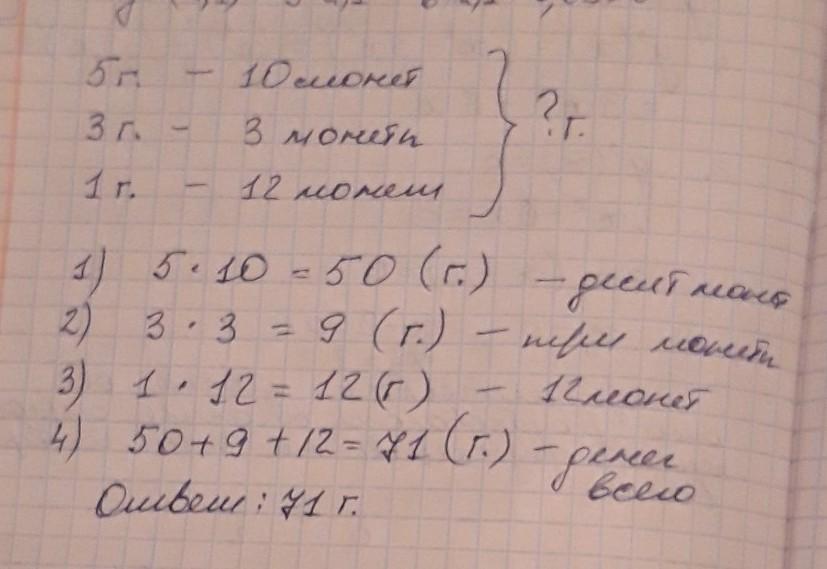 5г. - 10 монет
3 г. - 3 монеты
1 г. - 12 монет
? г.
1) 5 · 10 = 50 (г.) - десят монет
2) 3 · 3 = 9 (г.) - три монеты
3) 1 · 12 = 12 (г) - 12 монет
4) 50 + 9 + 12 = 71 (г.) - денег
всего
Ответ: 71 г.